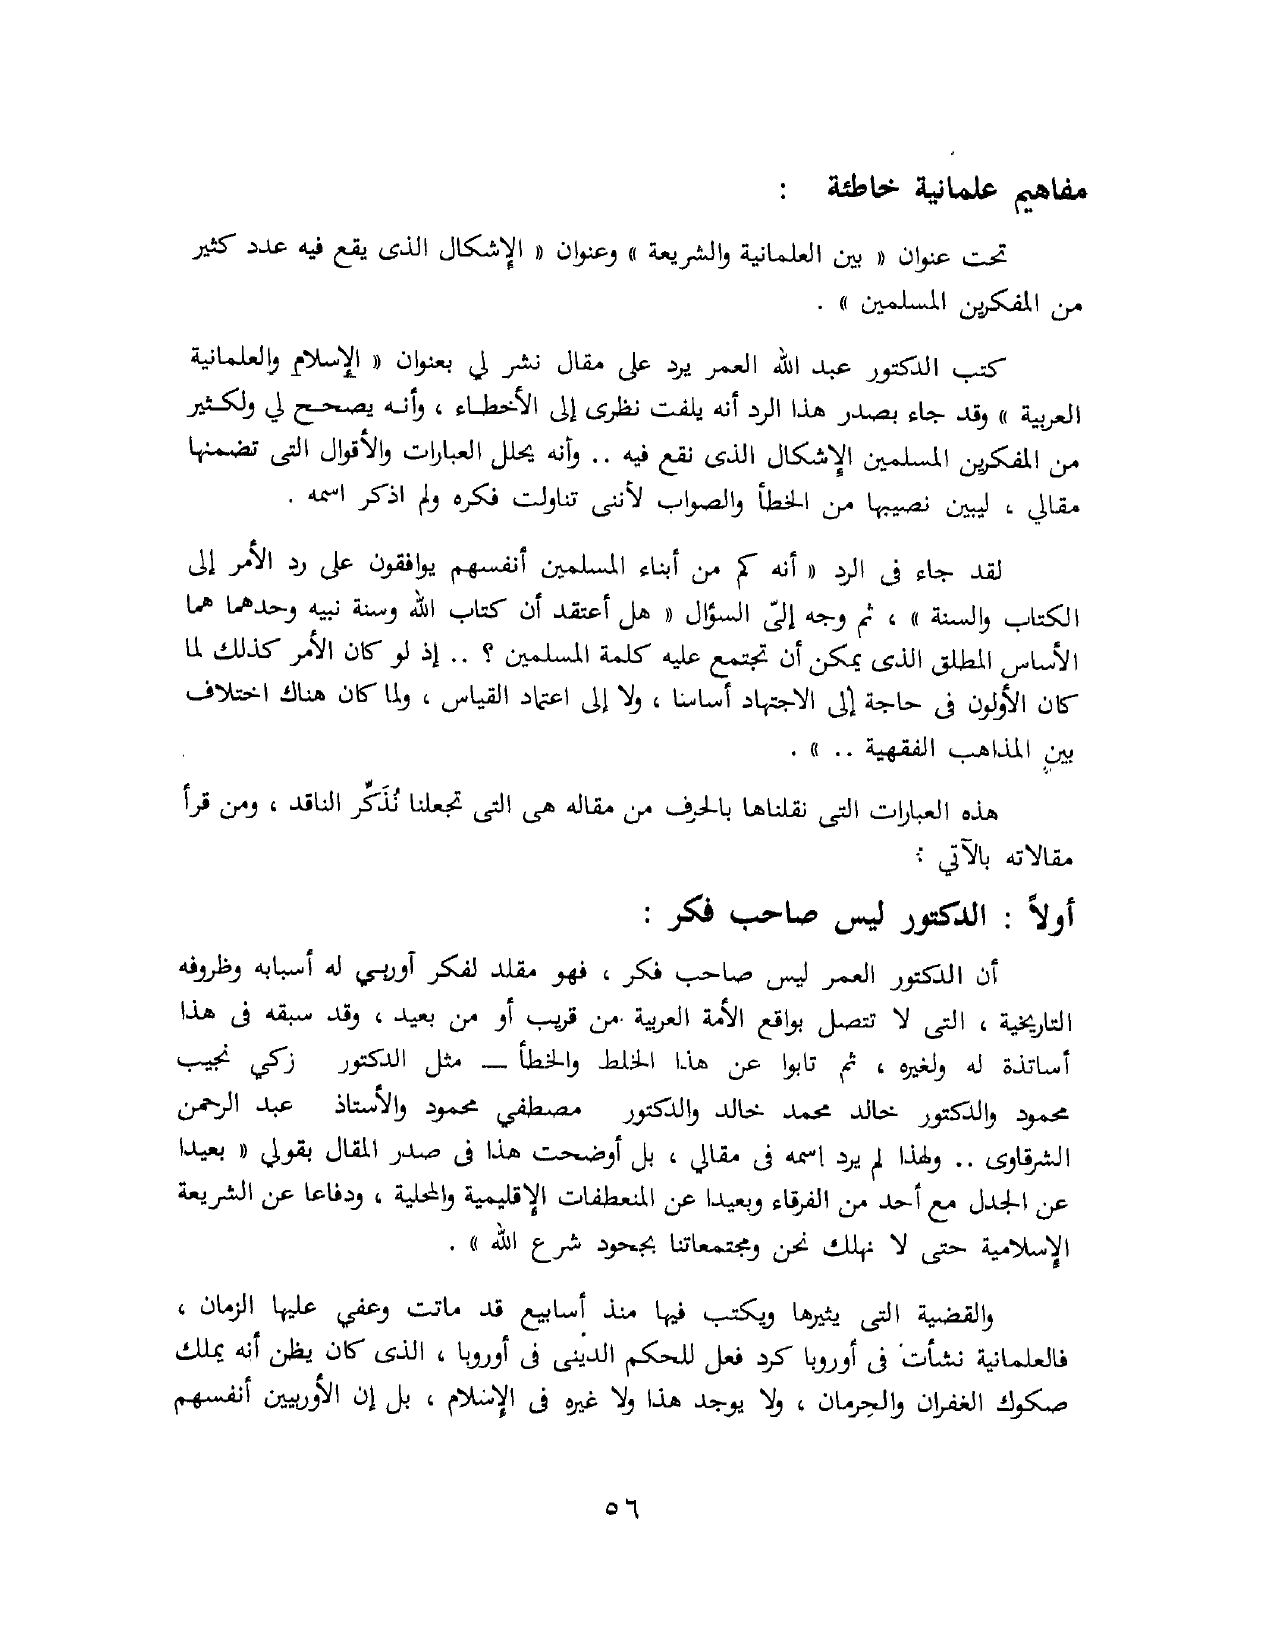 مفاهيم علمانية خاطئة :
تحت عنوان « بين العلمانية والشريعة » وعنوان « الإشكال الذى يقع فيه عدد كثير
من المفكرين المسلمين » .
كتب الدكتور عبد الله العمر يرد على مقال نشر لي بعنوان « الإسلام والعلمانية
العربية » وقد جاء بصدر هذا الرد أنه يلفت نظرى إلى الأخطاء ، وأنه يصحح لي ولكثير
من المفكرين المسلمين الإشكال الذى نقع فيه .. وأنه يحلل العبارات والأقوال التى تضمنها
مقالي ، ليبين نصيبها من الخطأ والصواب لأننى تناولت فكره ولم اذكر اسمه .
لقد جاء فى الرد « أنه كم من أبناء المسلمين أنفسهم يوافقون على رد الأمر إلى
الكتاب والسنة » ، ثم وجه إليّ السؤال « هل أعتقد أن كتاب الله وسنة نبيه وحدهما هما
الأساس المطلق الذى يمكن أن تجتمع عليه كلمة المسلمين ؟ .. إذ لو كان الأمر كذلك لما
كان الأولون فى حاجة إلى الاجتهاد أساسا ، ولا إلى اعتماد القياس ، ولما كان هناك اختلاف
بين المذاهب الفقهية .. » .
هذه العبارات التى نقلناها بالحرف من مقاله هى التى تجعلنا نُذَكِّر الناقد ، ومن قرأ
مقالاته بالآتي :
أولاً : الدكتور ليس صاحب فكر :
أن الدكتور العمر ليس صاحب فكر ، فهو مقلد لفكر آوربي له أسبابه وظروفه
التاريخية ، التى لا تتصل بواقع الأمة العربية من قريب أو من بعيد ، وقد سبقه فى هذا
أساتذة له ولغيره ، ثم تابوا عن هذا الخلط والخطأ — مثل الدكتور زكي نجيب
محمود والدكتور خالد محمد خالد والدكتور مصطفي محمود والأستاذ عبد الرحمن
الشرقاوى .. ولهذا لم يرد اسمه فى مقالي ، بل أوضحت هذا فى صدر المقال بقولي « بعيدا
عن الجدل مع أحد من الفرقاء وبعيدا عن المنعطفات الإقليمية والمحلية ، ودفاعا عن الشريعة
الإسلامية حتى لا نهلك نحن ومجتمعاتنا بجحود شرع الله » .
والقضية التى يثيرها ويكتب فيها منذ أسابيع قد ماتت وعفي عليها الزمان ،
فالعلمانية نشأت فى أوروبا كرد فعل للحكم الدينى فى أوروبا ، الذى كان يظن أنه يملك
صكوك الغفران والحرمان ، ولا يوجد هذا ولا غيره فى الإسلام ، بل إن الأوربيين أنفسهم
٥٦